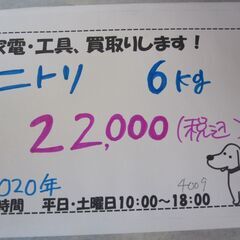 家電・工具、買取りします!
ニトリ 6kg
22,000(税込)
2020年
4009
時間 平日・土曜日10:00~18:00